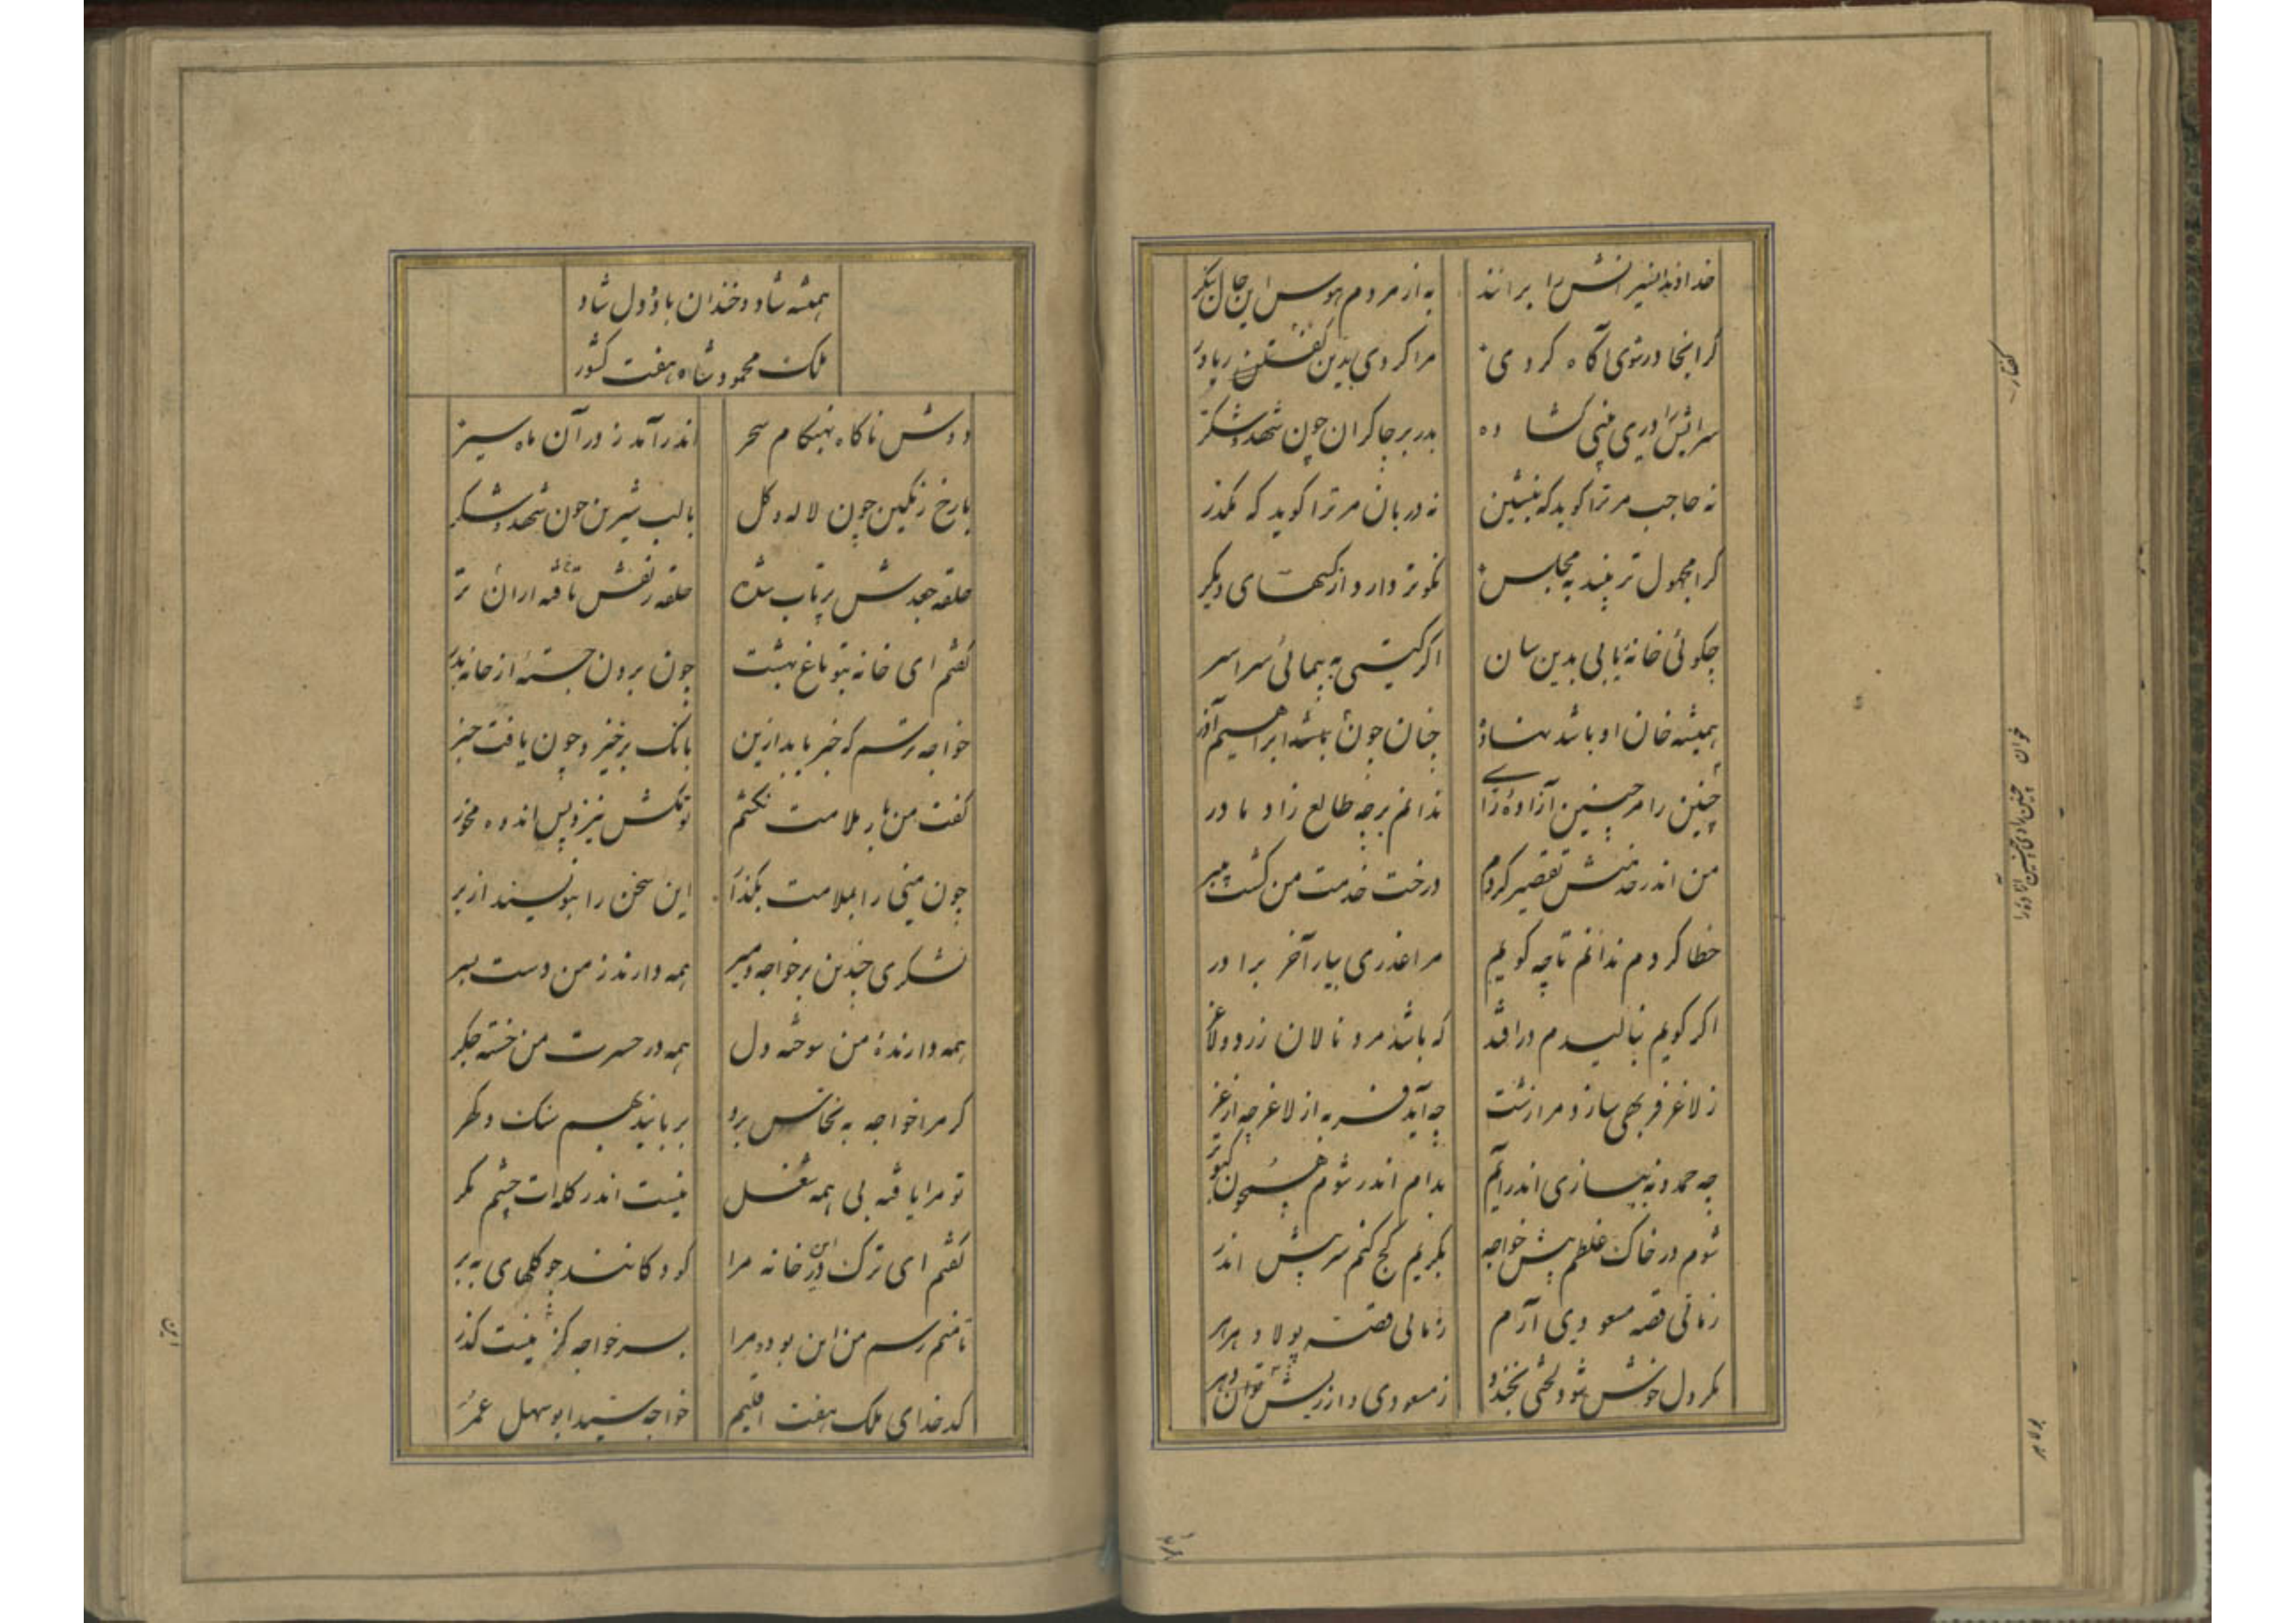 خداوندا نش را برانند به از مردم بوس این جال بنکر
کر اینجا درشوی آکاه کردی مرا کردی بدین کفتن
سرایش را دری بینی کشاده بدر بر چاکران چون شهد و شکر
نه حاجب مر ترا کوید که بنشین نه دربان مر ترا کوید که بکذر
کرا مجهول تر بیند به مجلس نکوتر دارد از کسهای دیکر
چکوئی خانهٔ یابی بدین سان اکر کیتی به پیمائی سراسر
همیشه خان او باشد نهاده چنان چون باشد ابراهیم آذر
چنین را مر چنین آزادهٔ را ندانم بر چه طالع زاد مادر
من اندر خدمتش تقصیر کردم درخت خدمت من کشت بی بر
خطا کردم ندانم تا چه کویم مرا عذری بیار آخر برادر
اکر کویم بنالیدم درافتد که باشد مرد نالان زرد و لاغر
ز لاغر فربهی سازد مرا زشت چه آید فربه از لاغر چه از غر
چه حمدونه ببازی اندر آیم بدام اندر شوم همچون کبوتر
شوم در خاک غلطم پیش خواجه بکریم کج کنم سر پیش اندر
زمانی قصه مسعودی آرم زمانی قصه پولاد
مکر دل خوش شود لختی بخندد ز مسعودی و از ریش
کفتار
خوان
چنین رادی چنین آزاده را
همیشه شاد و خندان باد و دل شاد
ملک محمود شاه هفت کشور
دوش ناکاه بهنکام سحر اندر آمد ز در آن ماه سیز
با رخ رنکین چون لاله و کل با لب شیرین چون شهد و شکر
حلقه جعدش پر تاب شده حلقه زلفش تافته
کفتم ای خانه بتو باغ بهشت چون برون جستهٔ از خانه بدر
خواجه ترسم که خبر یابد ازین بانک برخیزد چون یافت خبر
کفت من بار ملامت نکشم تو مکش نیز و پس انده مخور
چون منی را بملامت بکذار این سخن را بنویسند از بر
لشکری چندین بر خواجه و میر همه دارند ز من دست بسر
همه دارندهٔ من سوخته دل همه در حسرت من خسته جکر
کر مرا خواجه به نخاس برد بربایند بهم سنک و کهر
تو مرا یافتهٔ بی همه شغل نیست اندر کله‌ات چشم مکر
کفتم ای ترک در این خانه مرا کودکانند چو کلهای ببر
تا منم رسم من این بوده مرا پسر خواجه کز نیست کذر
کدخدای ملک هفت اقلیم خواجه سید ابوسهل عمر